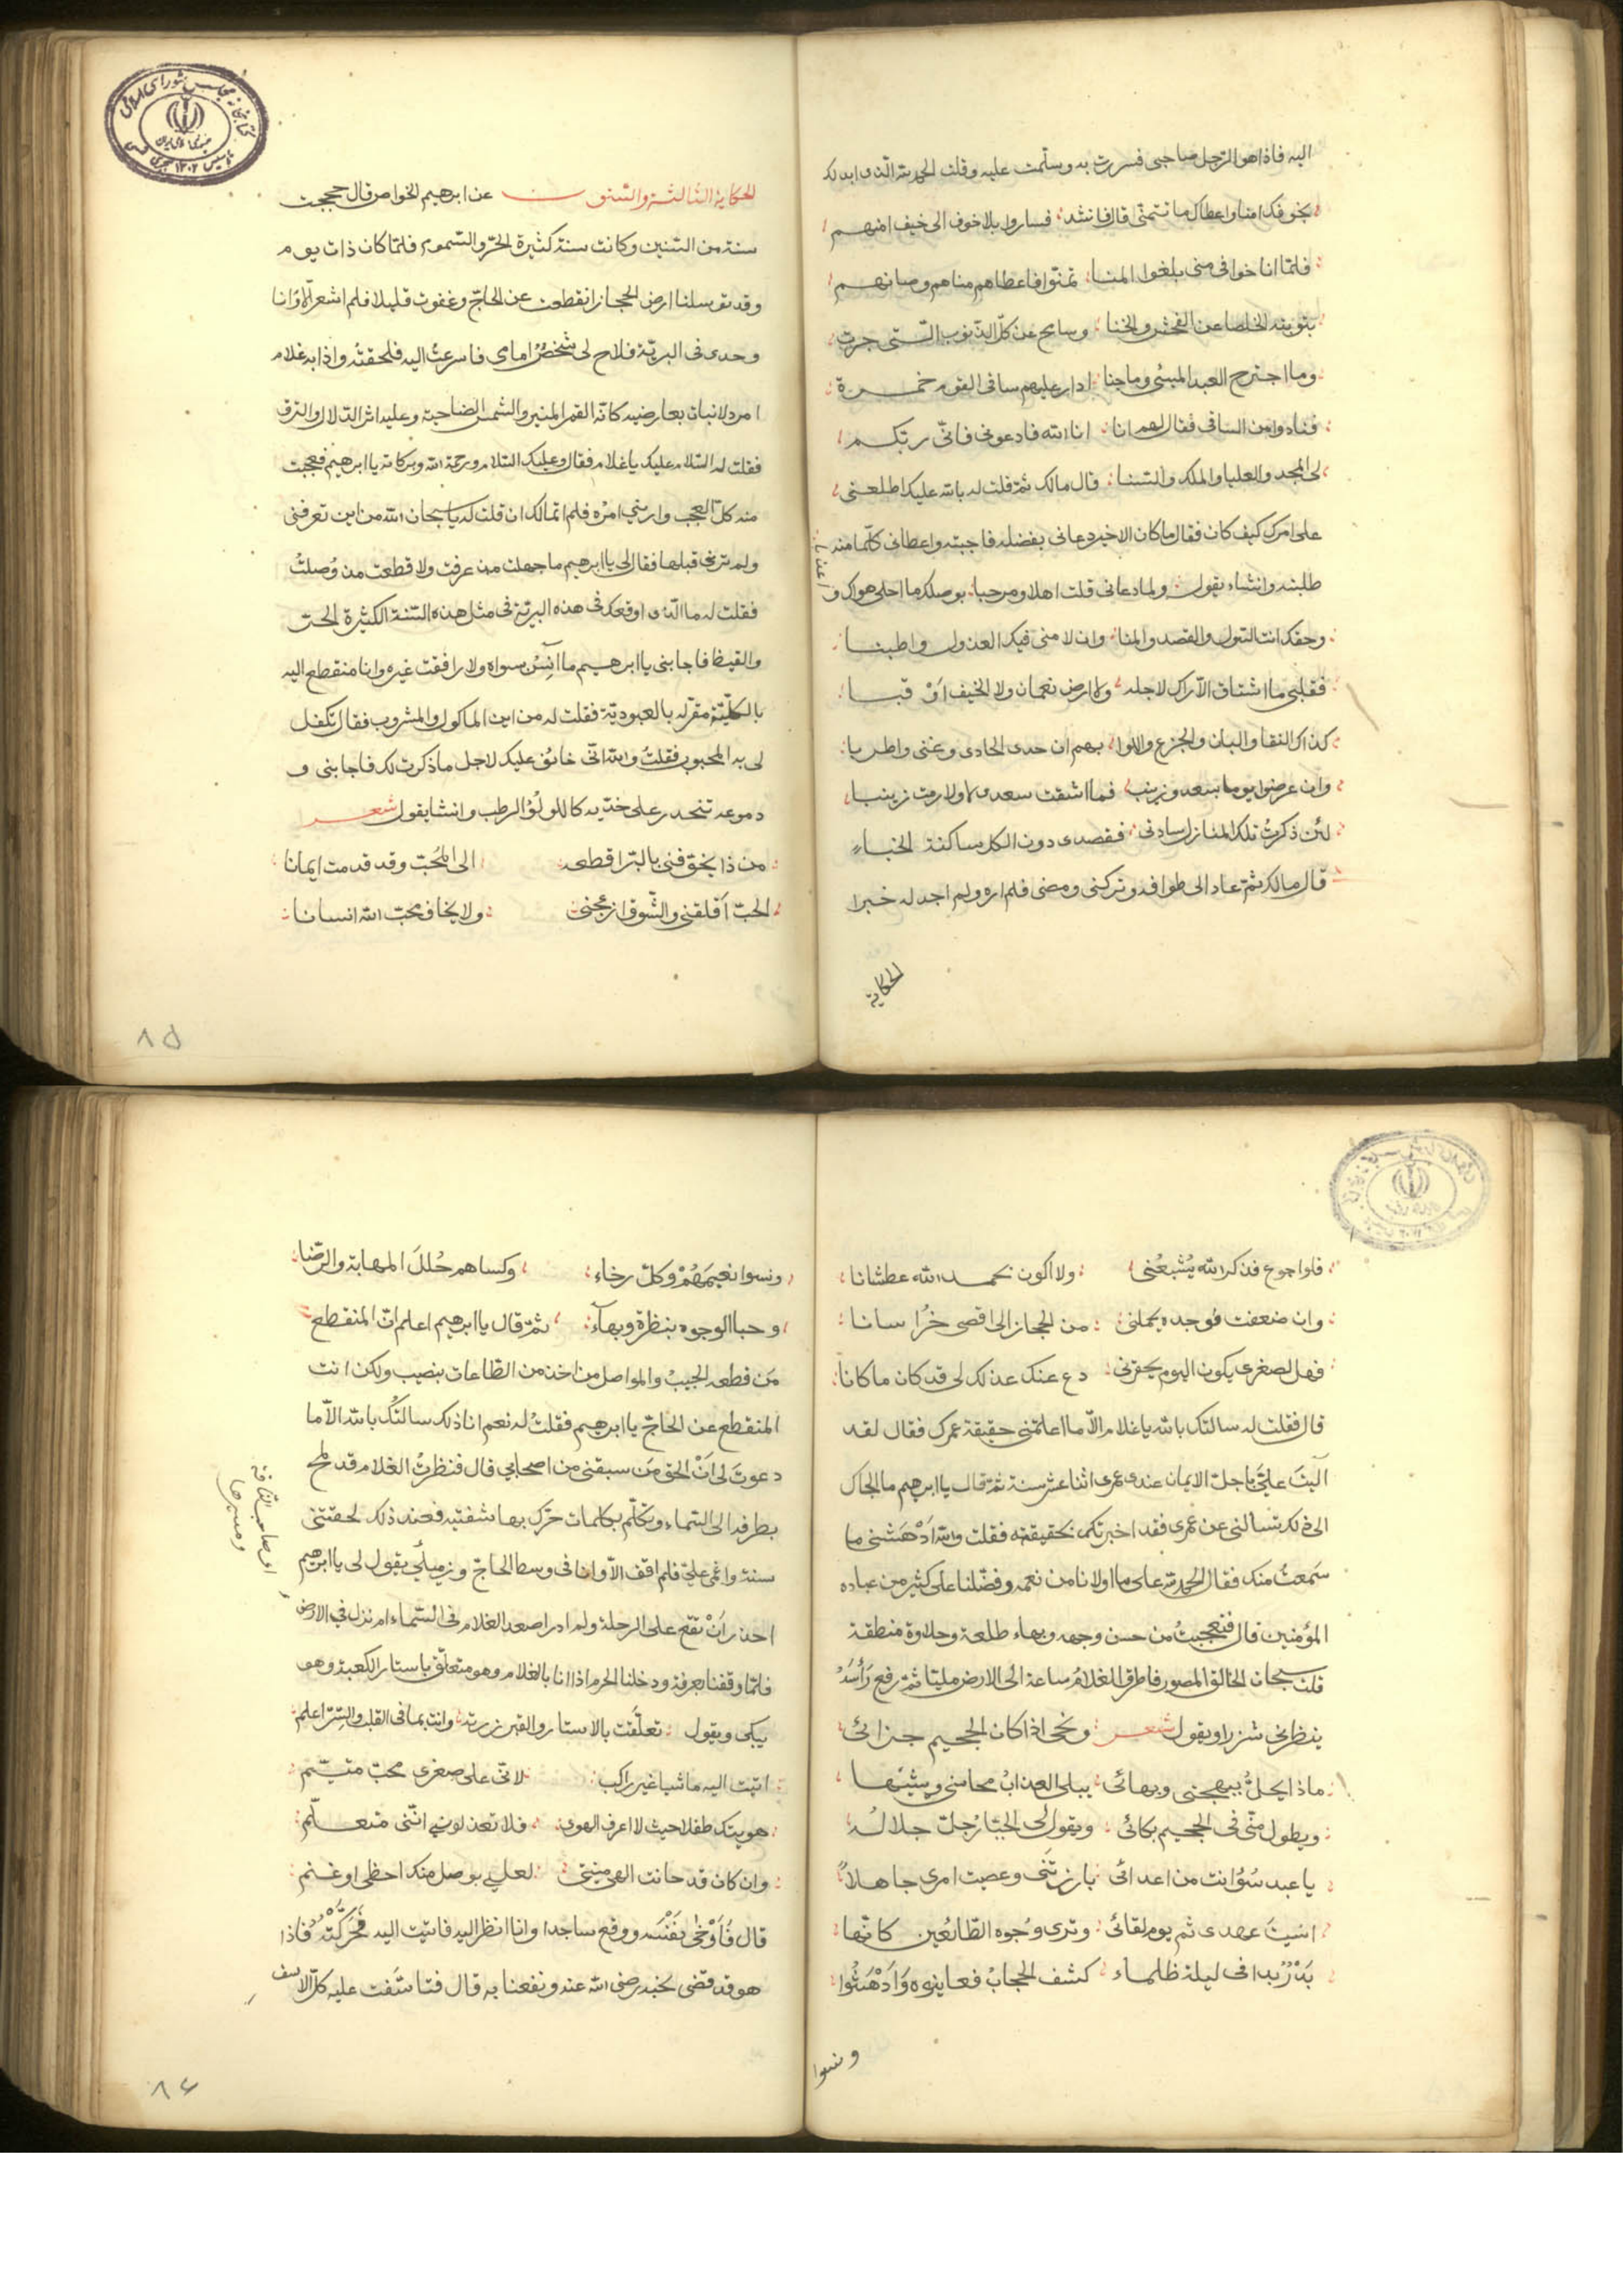 اليه فاذا هو الرجل صاحبى فسررت به وسلمت عليه وقلت الحمد لله الذى ابدلك
بخوفك امنا واعطاك ما تتمنّى قال فانشد فساروا بلا خوف الى خيف امنهم
فلمّا اناخوا فى منى بلغوا المنا تمنّوا فاعطاهم مناهم وصانهم
بتوبته الخلصا عن الفحش والخنا وسامح عن كلّ الذنوب الّتى جرت
وما اجترح العبد المسئى وما جنا ادار عليهم ساقى القوم خمرة
فنادوا من الساقى فقال لهم انا انا الله فادعونى فانّى ربّكم
لى المجد والعليا والملك والسنا قال مالك ثمّ قلت له بالله عليك اطلعنى
على امرك كيف كان فقال ما كان الاخير دعانى بفضله فاجبته واعطانى كلّما منه
طلبته وانشاء يقول ولما دعانى قلت اهلا ومرحبا بوصلك ما احلى هواك و
اعذبا
وحقك انت السول والقصد والمنا وان لامنى فيك العذول واطنبا
فقلبى ما اشتاق الاراك لاجله ولا ارض نعمان ولا الخيف اوْ قبا
كذاك النقا والبان والجزع واللوا بهم ان حدى الحادى وغنى واطربا
وان عرضوا يوما بسعد وزينب فما اشقت سعدى لا ولا رمت زينبا
لئن ذكرتُ تلك المنازل سادتى فقصدى دون الكل ساكنة الخباء
قال مالك ثمّ عاد الى طوافه وتركنى ومضى فلم اره ولم اجد له خبرا
الحكاية
الحكاية الثالثة والستون عن ابرهيم الخواص قال حججت
سنة من السنين وكانت سنة كثيرة الحرّ والسموم فلمّا كان ذات يوم
وقد توسلنا ارض الحجاز انقطعت عن الحاجّ وغفوت قليلا فلم اشعر الّا وانا
وحدى فى البريّة فلاح لى شخصٌ امامى فاسرعتُ اليه فلحقتُه واذا به غلام
امرد لا نبات بعارضيه كانّه القمر المنير والشمس الضاحية وعليه اثر الدلال والترف
فقلت له السلام عليك يا غلام فقال وعليك السلام ورحمة الله وبركاته يا ابرهيم فعجبت
منه كلّ العجب وارابنى امرْه فلم اتمالك ان قلت له يا سبحان الله من اين تعرفنى
ولم ترنى قبلها فقال لى يا ابرهيم ما جهلت مذ عرفت ولا قطعت مذ وُصلتُ
فقلت له ما الّذى اوقعك فى هذه البريّة فى مثل هذه السّنة الكثيرة الحت
والقيظ فاجابنى يا ابرهيم ما آنِسْن سواه ولا رافقت غيره وانا منقطع اليه
بالكليّة مقرله بالعبوديّة فقلت له من اين الماكول والمشروب فقال تكفل
لى به المحبوب فقلتُ والله انّى خائف عليك لاجل ما ذكرت لك فاجابنى و
دموعه تنحدر على خدّيه كاللولؤ الرطب وانشا يقول شعر
من ذا يخوّفنى بالبرّ اقطعه الى المُحَبّ وقد قدمت ايمانا
الحبّ اَقلقنى والشّوق ازعجنى ولا يخاف محبّ الله انسانا
٨٥
فلو اجوع فذكر الله يُشبعُنى ولا اكون بحمد الله عطشانا
وان ضعفت فوجده يحملنى من الحجاز الى اقصى خرُاسانا
فهل لصغرى يكون اليوم يحقرنى دع عنك عذلك لى قد كان ما كانا
قال فقلت له سالتك بالله يا غلام الاّ ما اعلمتنى حقيقة عمرك فقال لقد
آليتَ علىّ باجلّ الايمان عندى عمرى اثنا عشر سنة ثمّ قال يا ابرهيم ما الجاك
الى ذلك تسالنى عن عمرى فقد اخبرتك بحقيقته فقلت والله اَدْهَشنى ما
سَمعتُ منك فقال الحمد لله على ما اولانا من نعمه وفضّلنا على كثير من عباده
المؤمنين قال فتعجبتُ من حسن وجهه وبهاء طلعة وحلاوة منطقة
قلت سبحان الخالق المصوّر فاطرق الغلامُ ساعة الى الارض مليّا ثمّ رفع رَأسَهُ
ينظرنى شزرا ويقول شعر ونحى اذا كان الجحيم جزائى
ماذا يحلّ ببهجتى وبهائى يبلى العذابُ محاسنى ويشينُها
ويطول منّى فى الجحيم بكائى ويقول لى الجبّارُ جلّ جلالُه
يا عبد سُوُ انت من اعدائى بارزتَنى وعصيت امرى جاهلاً
انسيتَ عهدى ثم يوم لقائى وترى وجُوه الطّائعين كانّها
بَدْرٌ بدا فى ليلة ظلماء كشف الحجابُ فعاينوه وَاَدْهَشُوا
ونسوا
ونسوا نعيمَهُمْ وكلّ رخاء وكساهم حُللَ المهابة والرّضا
وحبا الوجوه بنظرة وبهآء ثمّ قال يا ابرهيم اعلم انّ المنقطع
مَن قطعه الحبيبُ والمواصل من اخذ من الطاعات بنصيب ولكن انت
المنقطع عن الحاجّ يا ابرهيم فقلتُ له نعم انا ذلك سالتُك بالله الّا ما
دعوتَ لى اَنْ الحق مَن سبقنى من اصحابى قال فنظرتُ الغلام قد لمح
بطرفه الى السّماء وتكلّم بكلمات حرّك بها شفتيه فعند ذلك لحقتنى
سنة واغمى علىّ فلم افق الاّ وانا فى وسط الحاجّ وزميلى يقول لى يا ابرهيم
احذر اَنْ تقع على الرحلة ولم ادر اصعد الغلام فى السّماء ام نزل فى الارض
فلمّا وقفنا بعرفة ودخلنا الحرم اذا انا بالغلام وهو متعلّق باستار الكعبة وهو
يبكى ويقول تعلّقت بالاستار والقبر زرته وانت بما فى القلب والسّرّ اعلم
اتيت اليه ماشيا غير راكب لانّى على صغرى محبّ متيّم
هويتك طفلا حيث لا اعرف الهوى فلا تعذلونى انّنى متعلّم
وان كان قد حانت الهى منيتى لعلى بوصل منك احظى اوغنم
قال فَاَوْخى بنَفْسَه ووقع ساجدا وانا انظر اليه فاتيت اليه فَحَرّكْتُهُ فاذا
هو قد قضى نحبه رضى الله عنه ونفعنا به قال فتاسّفت عليه كلّ الاسف
٨٦